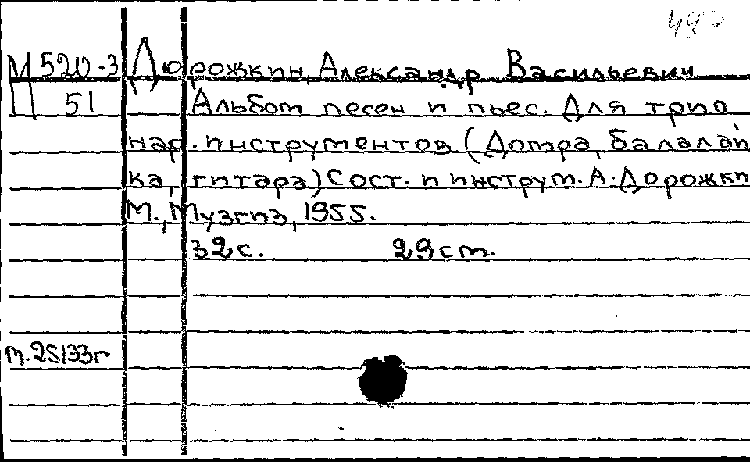 М 520-3 Дюрожкин, Александр Васильевич
Ц 51 Альбом песен и пьес. Для трио
нар. инструментов (Домра, балалай
ка, гитара) Сост. и инструм. А. Дорожки
М., Музгиз, 1955.
32с. 29см.
м.25133г